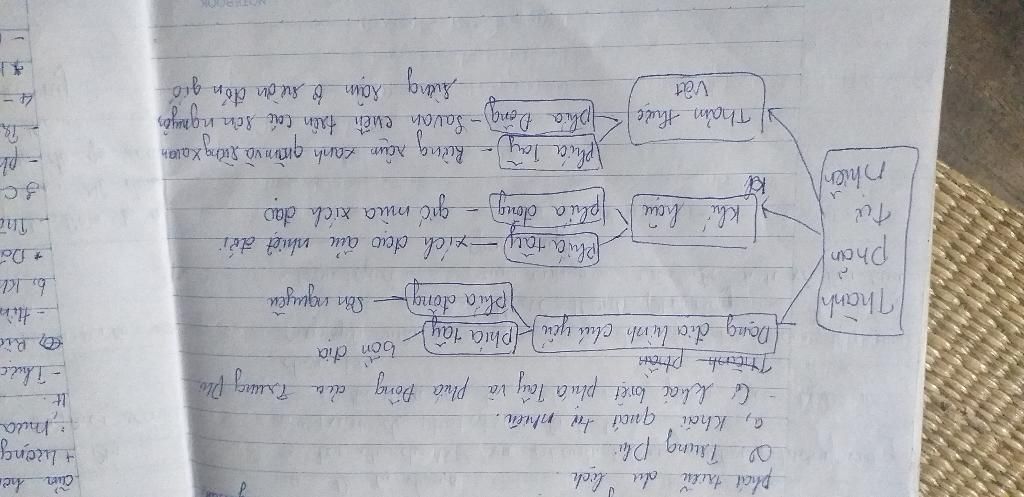 phát triển du lịch.
2) Trung Phi
a, Khái quát tự nhiên.
- Có khác biệt phía Tây và phía Đông của Trung Phi
Thành phần
Dạng địa hình chủ yếu
phía tây
bồn địa
phía đông
— sơn nguyên
Thành
phần
Tự
nhiên
Khí hậu
Phía tây
— xích đạo ẩm nhiệt đới
phía đông
— gió mùa xích đạo
Thảm thực
vật
Phía Tây
- Rừng rậm xanh và rừng xavan
phía Đông
- Savan trên các sơn nguyên
rừng rậm ở sườn đón gió
+ lượng
mưa
- Thực
NOTEBOOK